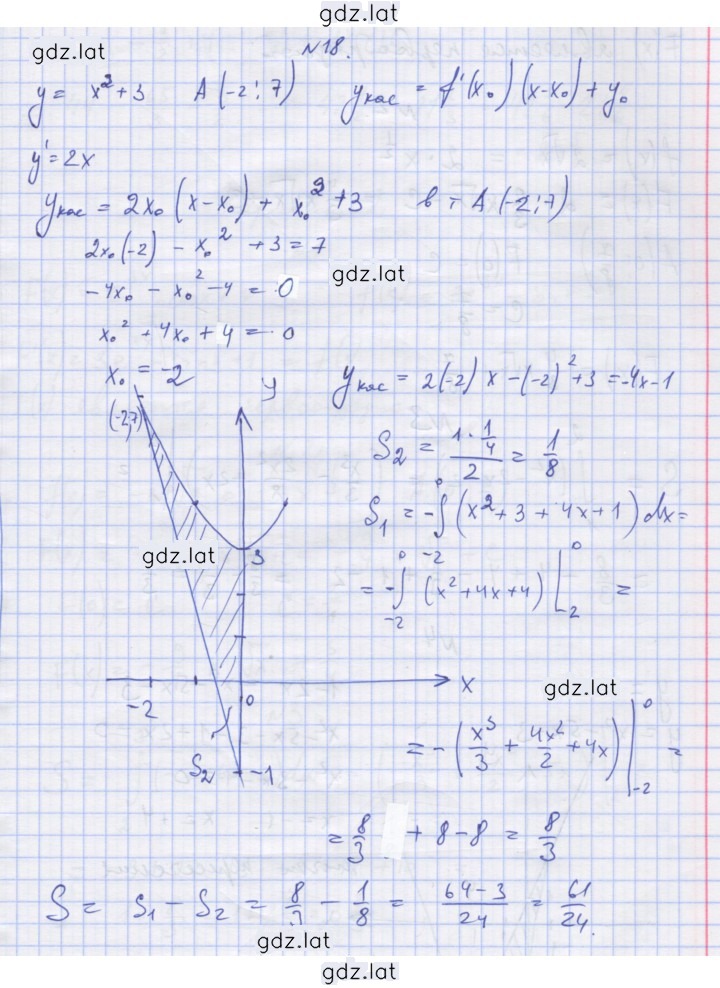 gdz.lat
gdz.lat
N18.
y = x² + 3 A (-2; 7) yкас = f'(x₀) (x-x₀) + y₀
y' = 2x
yкас = 2x₀ (x-x₀) + x₀² + 3 в т A (-2; 7)
2x₀(-2) - x₀² + 3 = 7
gdz.lat
-4x₀ - x₀² - 4 = 0
x₀² + 4x₀ + 4 = 0
x₀ = -2
yкас = 2(-2) x - (-2)² + 3 = -4x-1
y
(-2;7)
S₂ = (1 · 1/4)/2 = 1/8
S₁ = -∫₋₂⁰ (x² + 3 + 4x + 1) dx =
gdz.lat
3
= -∫₋₂⁰ (x² + 4x + 4) |₋₂⁰ =
x
gdz.lat
-2
0
= - (x³/3 + 4x²/2 + 4x) |₋₂⁰ =
S₂
-1
= 8/3 + 8 - 8 = 8/3
S = S₁ - S₂ = 8/3 - 1/8 = (64-3)/24 = 61/24.
gdz.lat
gdz.lat